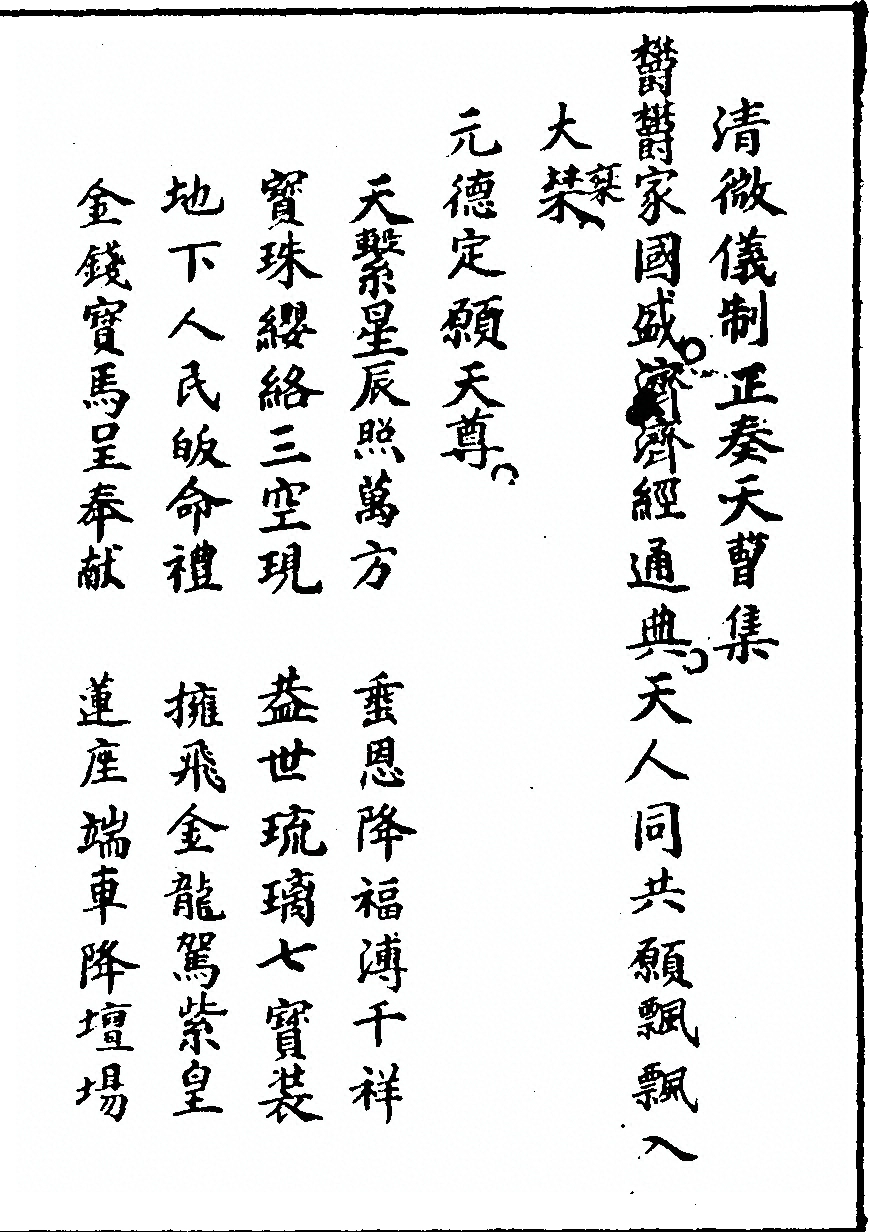 清微儀制正奏天曹集
欝欝家國盛。濟濟經通典。天人同共願飄飄入
大棨
元德定願天尊。
天繫星辰照萬方　垂恩降福溥千祥
寶珠纓絡三空現　蓋世琉璃七寶裝
地下人民皈命禮　擁飛金龍駕紫皇
金錢寶馬呈奉献　蓮座端車降壇場